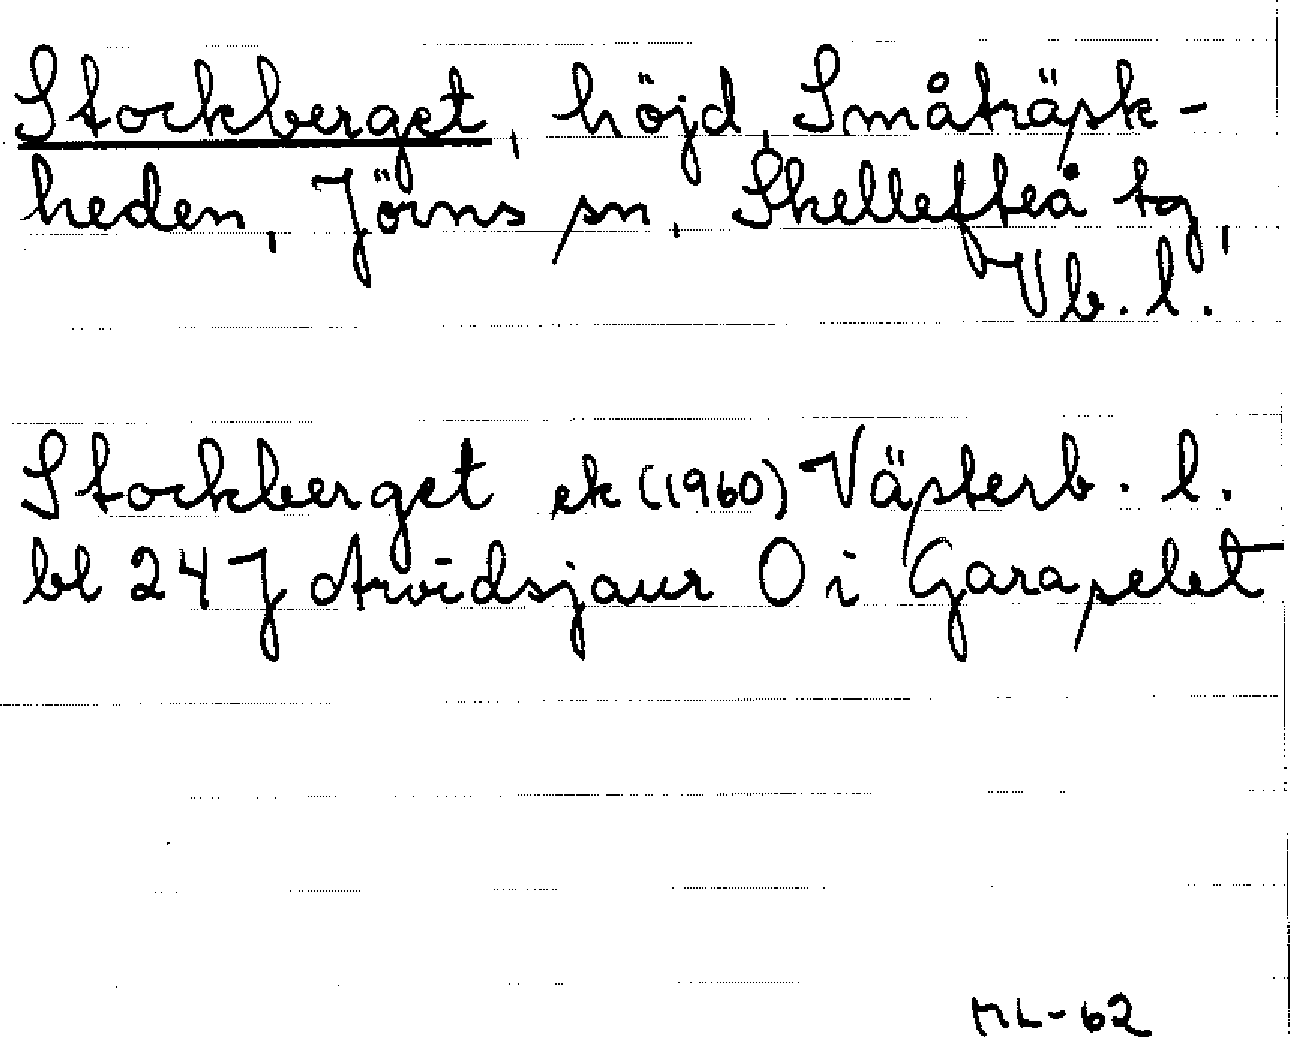 Stockberget, höjd, Småträsk-
heden, Jörns sn, Skellefteå tg,
Vb. l.
Stockberget ek (1960) Västerb. l.
bl 24 J Arvidsjaur O i Garaselet
ML-62